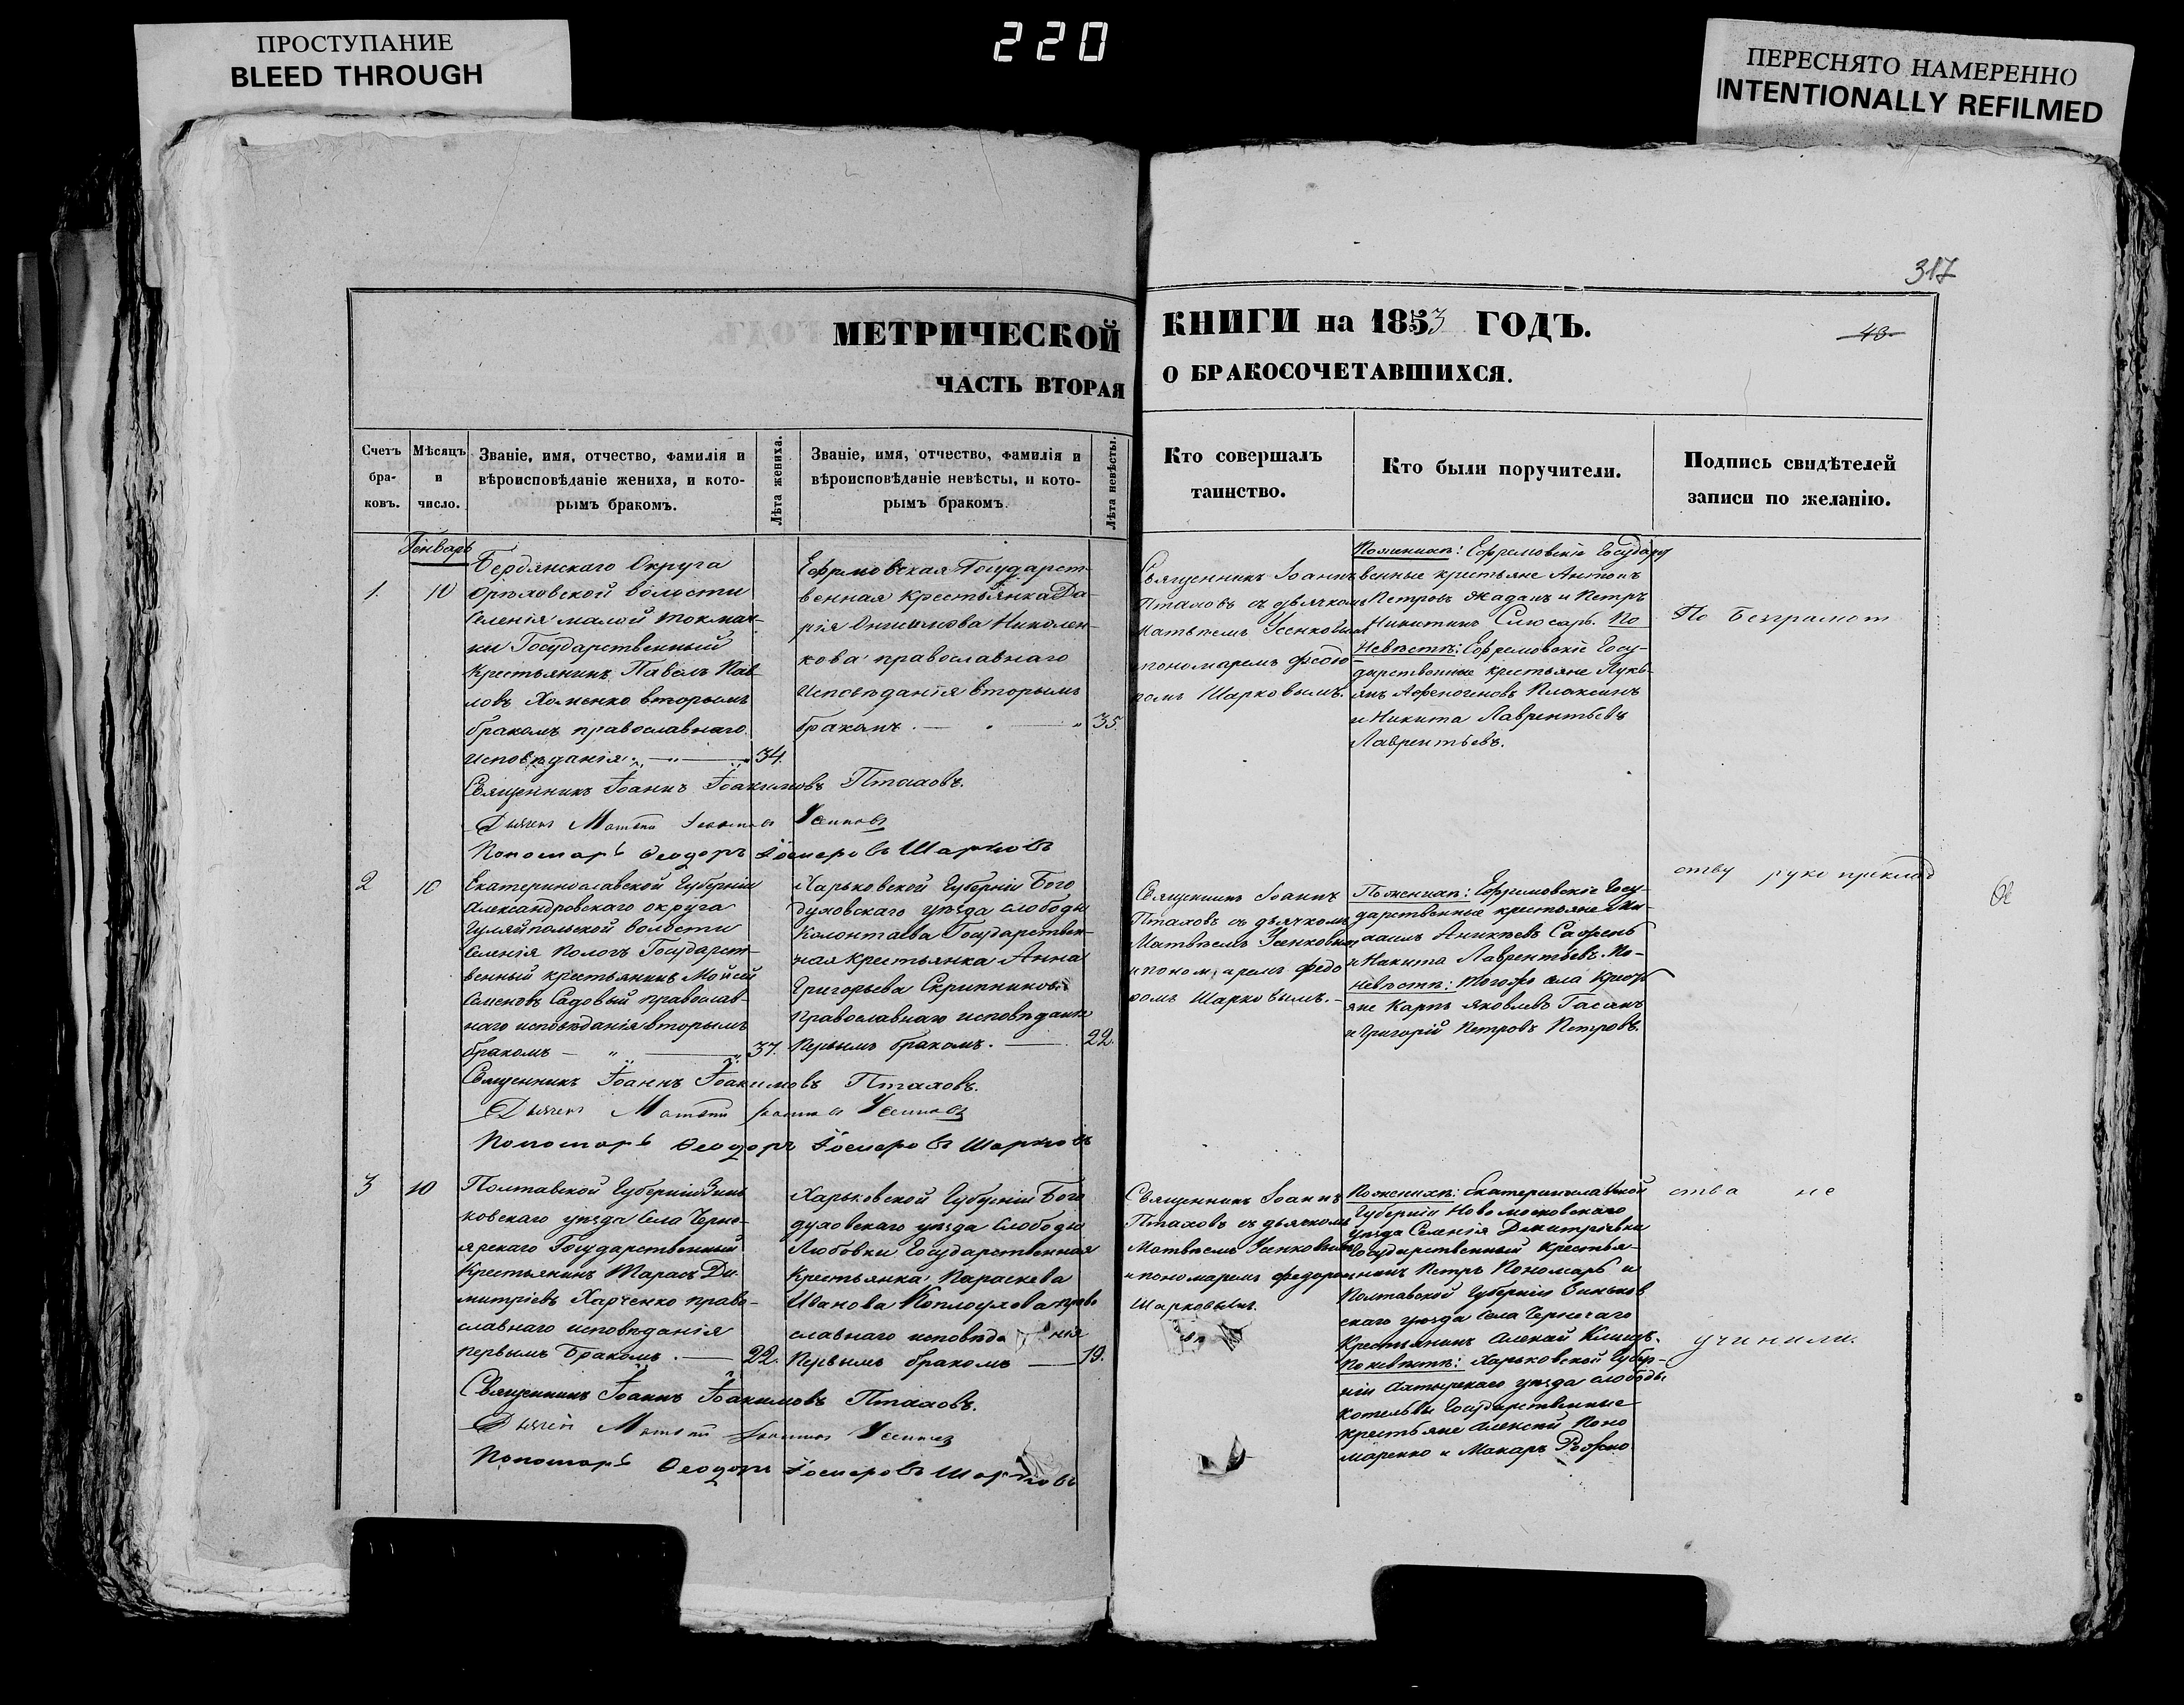 ПРОСТУПАНИЕ
BLEED THROUGH
220
ПЕРЕСНЯТО НАМЕРЕННО
INTENTIONALLY REFILMED
317
МЕТРИЧЕСКОЙ КНИГИ на 1853 ГОДЪ.
43
ЧАСТЬ ВТОРАЯ О БРАКОСОЧЕТАВШИХСЯ.
Счетъ
бра-
ковъ.
Мѣсяцъ
и
число.
Званіе, имя, отчество, фамилія и
вѣроисповѣданіе жениха, и кото-
рымъ бракомъ.
Лѣта жениха.
Званіе, имя, отчество, фамилія и
вѣроисповѣданіе невѣсты, и кото-
рымъ бракомъ.
Лѣта невѣсты.
Кто совершалъ
таинство.
Кто были поручители.
Подпись свидѣтелей
записи по желанію.
Генварь
1.
10
Бердянскаго Округа
Орѣховской волости
Селенія малой токмач-
ки Государственный
Крестьянинъ Павелъ Пав-
ловъ Хоменко вторымъ
бракомъ православнаго
исповѣданія
34.
Ефремовская Государст-
венная крестьянка Да-
рія Онисимова Николен-
кова православнаго
Исповѣданія вторымъ
бракомъ.
35.
Священникъ Іоаннъ
Птаховъ съ дьячкомъ
Матвѣемъ Усенковымъ
и пономаремъ Федо-
ромъ Шарковымъ.
По женихѣ: Ефремовскіе Государст
венные крестьяне Антонъ
Петровъ Жаданъ и Петръ
Никитинъ Слюсарь. По
Невѣстѣ: Ефремовскіе Госу-
дарственные крестьяне Лукь-
янъ Афеногеновъ Плаксинъ
и Никита Лаврентьевъ
Лаврентьевъ.
По безграмот
Священникъ Іоаннъ Іоакимовъ Птаховъ.
Дьячекъ Матѳей Усенковъ
Пономарь Ѳеодоръ Шарковъ
2
10
Екатеринославской Губерніи
Александровскаго округа
Гуляйпольской волости
Селенія Пологъ Государст-
венный крестьянинъ Мойсей
Семеновъ Садовый православ-
наго исповѣданія вторымъ
бракомъ
37.
Харьковской Губерніи Бого
духовскаго уѣзда слободы
Колонтаева Государствен-
ная крестьянка Анна
Григорьева Скрипникова
православнаго исповѣданія
Первымъ бракомъ.
22.
Священникъ Іоаннъ
Птаховъ съ дьячкомъ
Матвѣемъ Усенковымъ
и пономаремъ Федо
ромъ Шарковымъ.
По женихѣ: Ефремовскіе Госу-
дарственные крестьяне Ми-
хаилъ Аникѣевъ
и Никита Лаврентьевъ. По-
невѣстѣ: того же села Крестья
яне Карпъ Яковлевъ Гасанъ
и Григорій Петровъ Петровъ.
ству рукоприклад
Священникъ Іоаннъ Іоакимовъ Птаховъ.
Дьячекъ Матѳей Усенковъ
Пономарь Ѳеодоръ Шарковъ
3
10
Полтавской Губерніи Зинь
ковскаго уѣзда Села Черно-
ярскаго Государственный
Крестьянинъ Тарасъ Ди-
митріевъ Харченко право-
славнаго исповѣданія
первымъ Бракомъ.
22.
Харьковской Губерніи Бого
духовскаго уѣзда Слободы
Любовки Государственная
Крестьянка Параскева
Иванова право
славнаго исповѣданія
Первымъ бракомъ
19.
Священникъ Іоаннъ
Птаховъ съ дьячкомъ
Матвѣемъ Усенковымъ
и пономаремъ Федоромъ
Шарковымъ.
По женихѣ: Екатеринославской
Губерніи Новомосковскаго
уѣзда Селенія Дмитріевки
Государственный Крестья-
нинъ Петръ Пономарь и
Полтавской Губерніи Зиньков
скаго уѣзда села
Крестьянинъ Алексѣй
По невѣстѣ: Харьковской Губер-
ніи Ахтырскаго уѣзда слободы
Котельвы Государственные
крестьяне Алексѣй Поно
маренко и Макаръ
ства не
учинили.
Священникъ Іоаннъ Іоакимовъ Птаховъ.
Дьячекъ Матѳей Усенковъ
Пономарь Ѳеодоръ Шарковъ